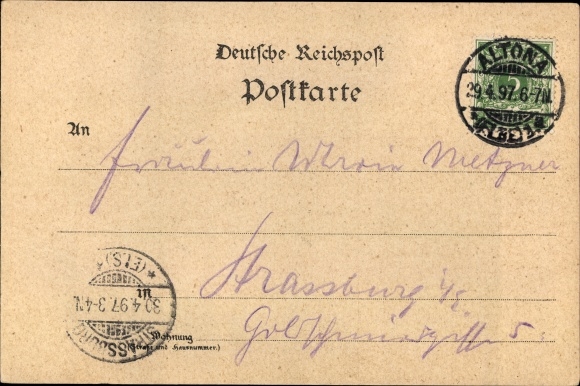 Deutsche Reichspost
Postkarte
ALTONA
29.4.97.6-7N.
*(ELBE)1*
An
Fräulein Metzner
Strassburg i/E
in
STRASSBURG
30.4.97.3-4N.
*(ELS)*
Wohnung
(Straße und Hausnummer.)
5.